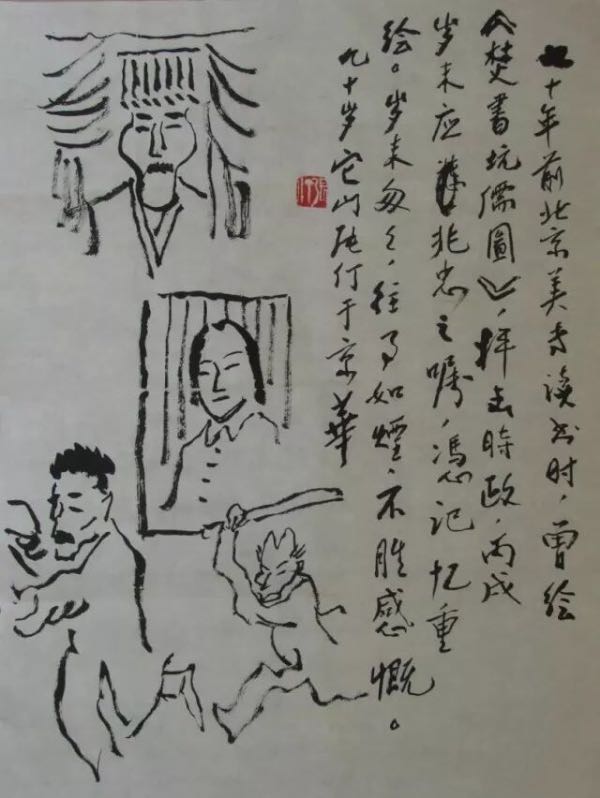 十年前北京美专读书时，曾绘
《焚書坑儒圖》，抨击時政，丙戌
岁末应兆忠之嘱，凭记忆重
绘。岁末匆匆，往事如煙，不胜感慨。
九十岁它山张仃于京華
张仃